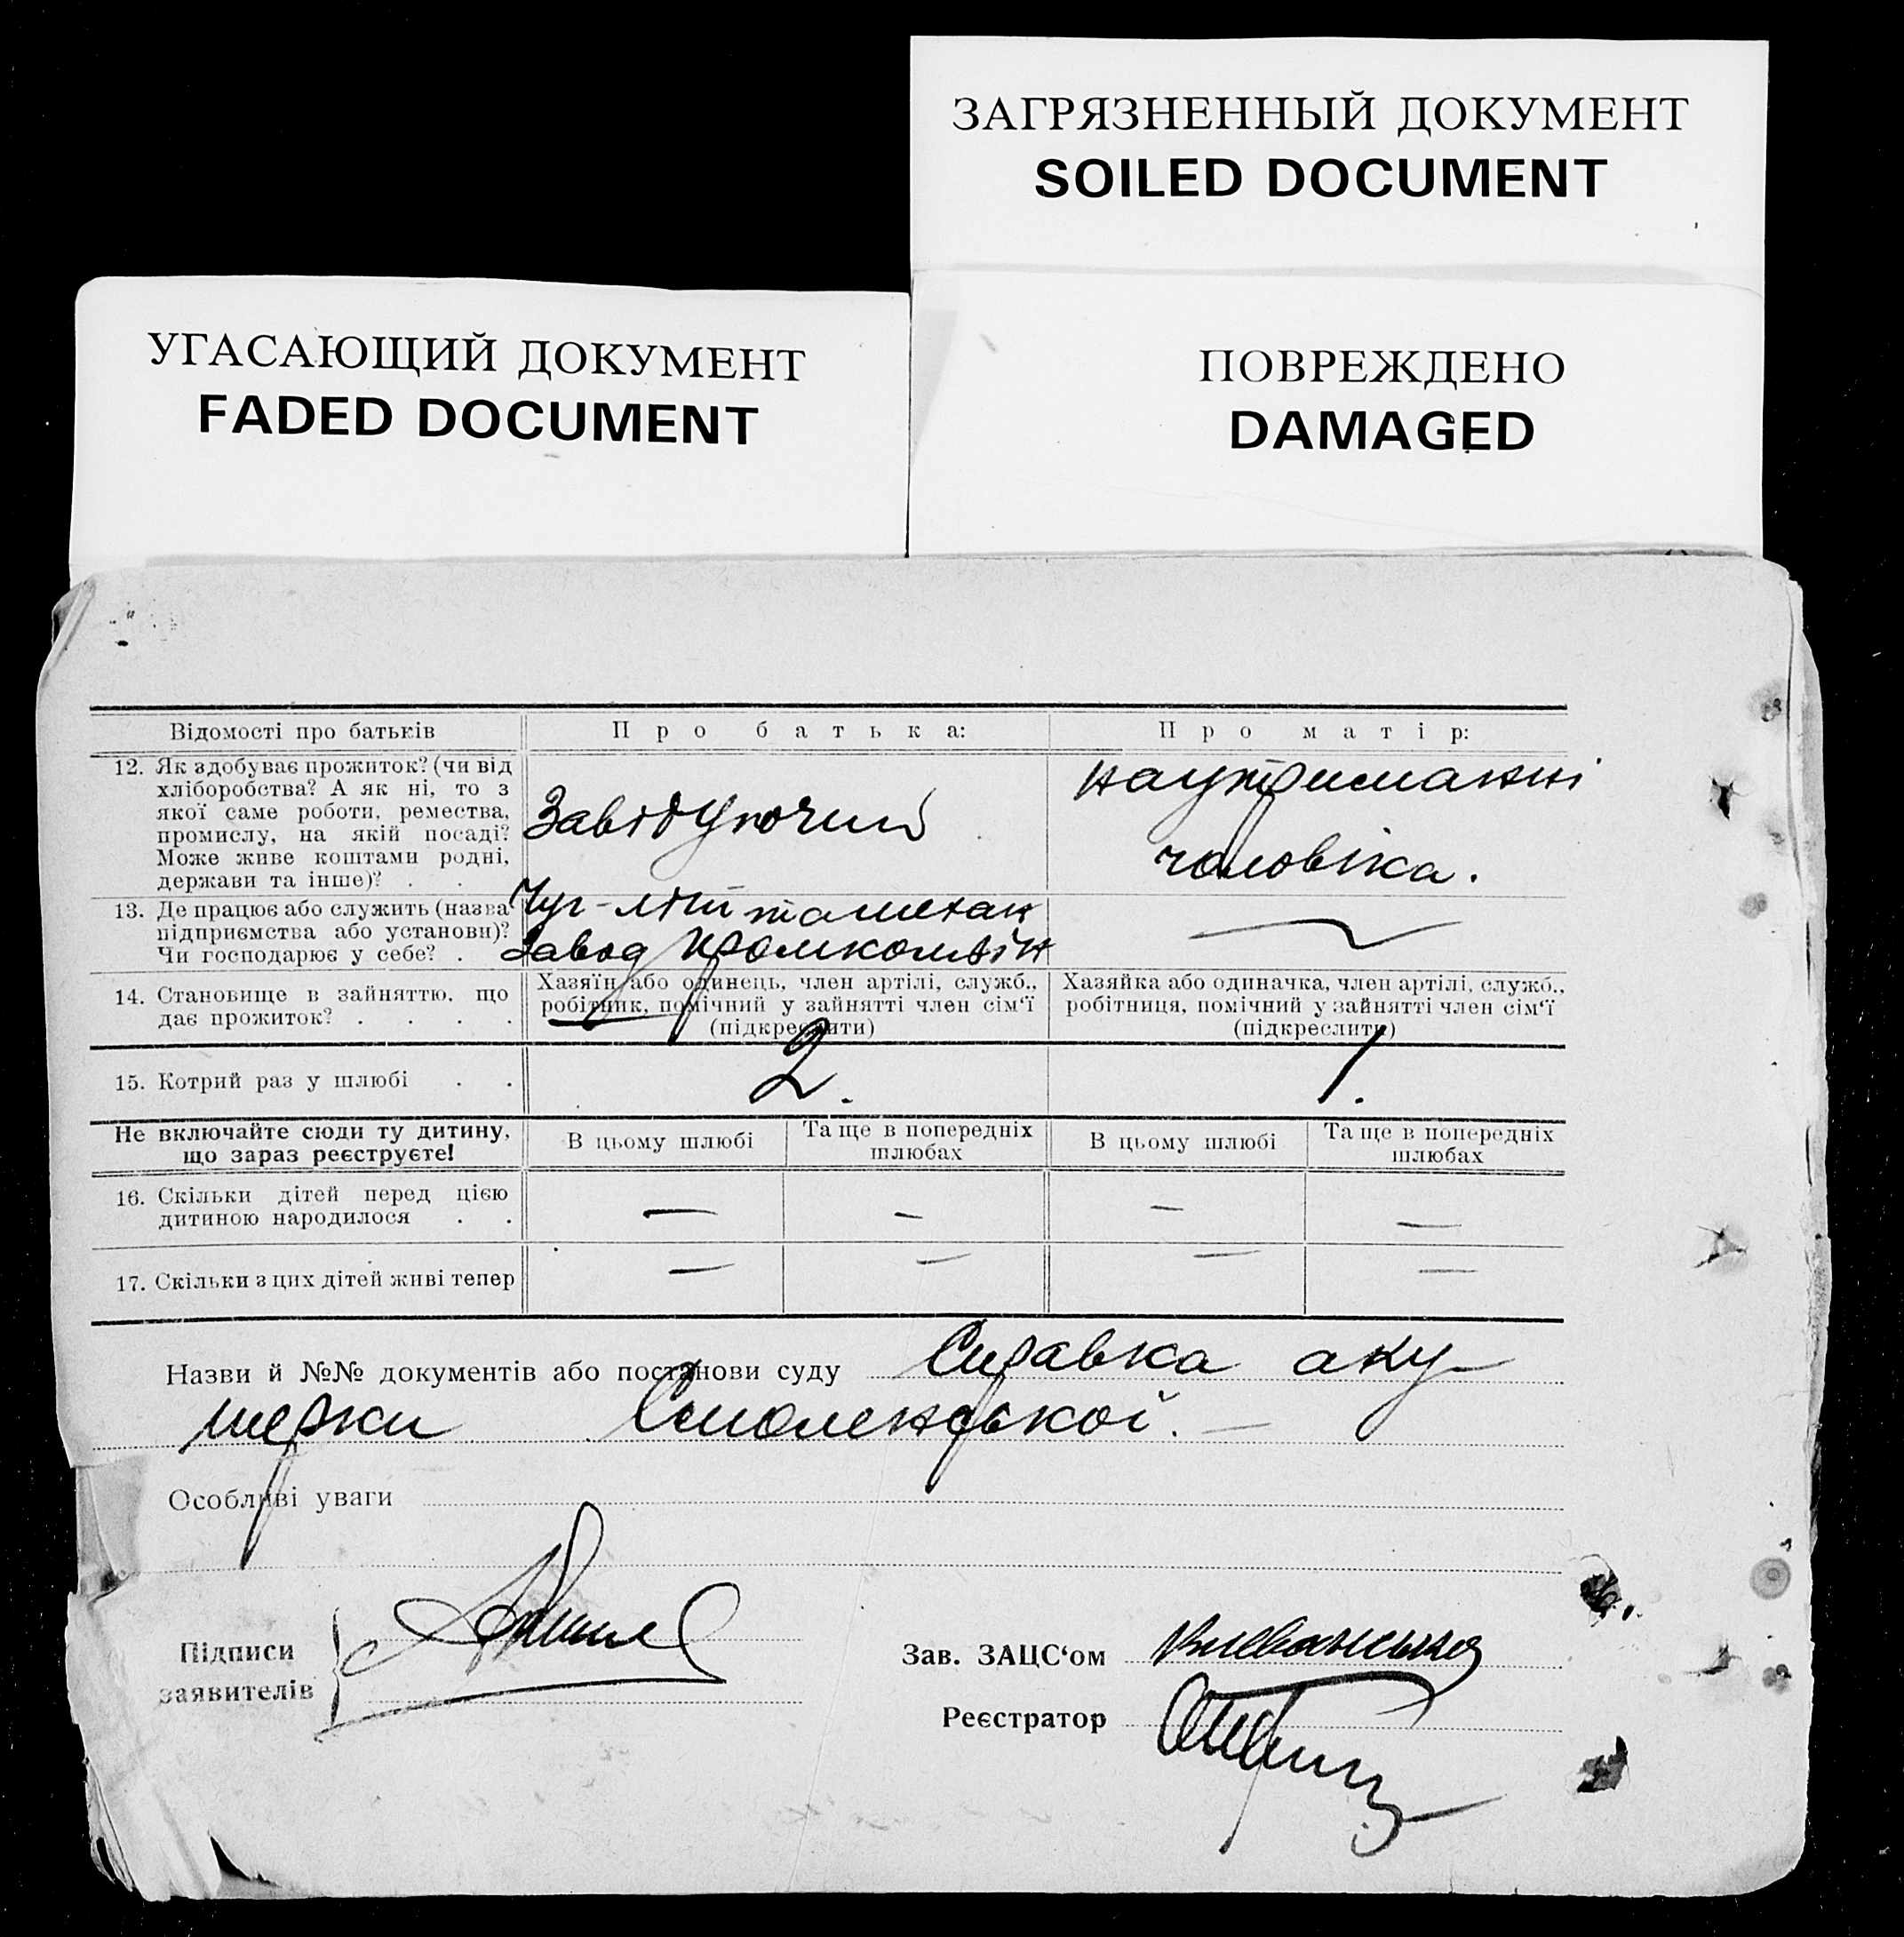 ЗАГРЯЗНЕННЫЙ ДОКУМЕНТ
SOILED DOCUMENT
УГАСАЮЩИЙ ДОКУМЕНТ
FADED DOCUMENT
ПОВРЕЖДЕНО
DAMAGED
Відомості про батьків
Про батька:
Про матір:
12. Як здобуває прожиток? (чи від
хліборобства? А як ні, то з
якої саме роботи, ремества,
промислу, на якій посаді?
Може живе коштами родні,
держави та інше)? . .
Завідуючий
на утриманні
чоловіка.
13. Де працює або служить (назва
підприємства або установи)?
Чи господарює у себе? .
Чуг-
завод
14. Становище в зайняттю, що
дає прожиток? . . . .
Хазяїн або одинець, член артілі, служб.,
робітник, помічний у зайнятті член сім‘ї
(підкреслити)
Хазяйка або одиначка, член артілі, служб.,
робітниця, помічний у зайнятті член сім‘ї
(підкреслити)
15. Котрий раз у шлюбі . .
2.
1.
Не включайте сюди ту дитину,
що зараз реєструєте!
В цьому шлюбі
Та ще в попередніх
шлюбах
В цьому шлюбі
Та ще в попередніх
шлюбах
16. Скільки дітей перед цією
дитиною народилося . .
— — — —
17. Скільки з цих дітей живі тепер
— — — —
Назви й №№ документів або постанови суду Справка аку-
шерки Смоленської. —
Особливі уваги
Підписи
заявителів
Зав. ЗАЦС‘ом
Реєстратор